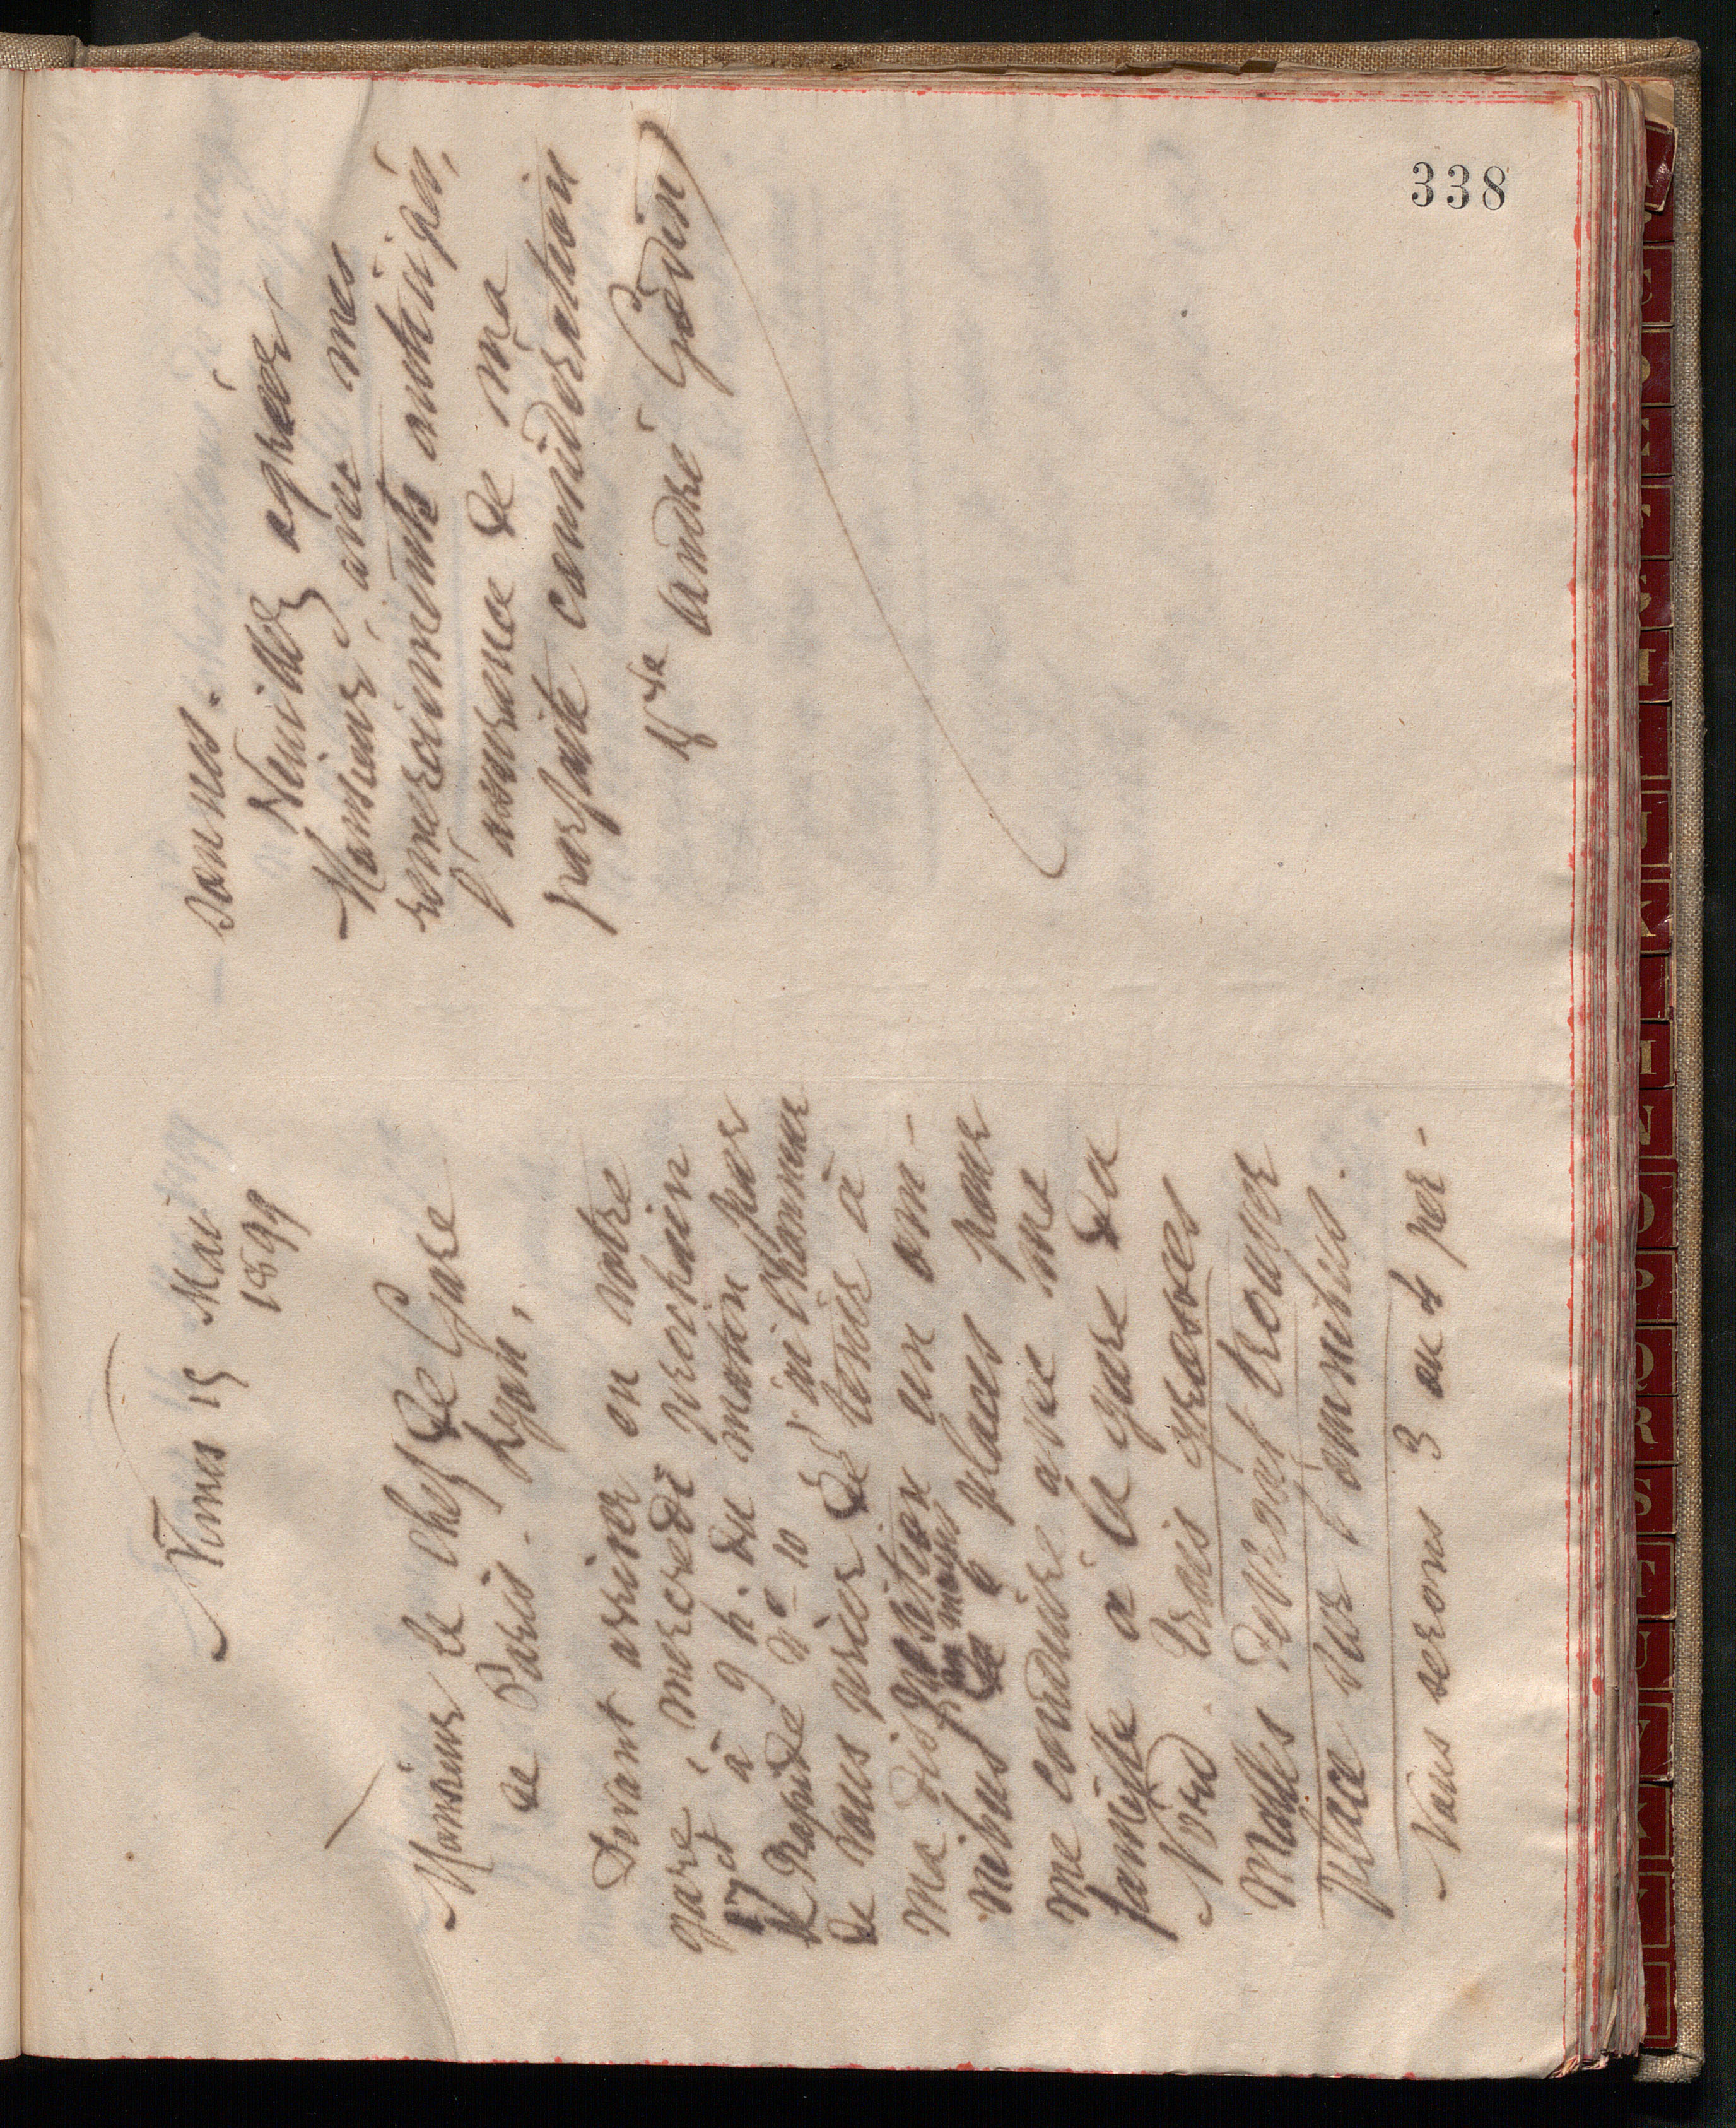 338
Nimes 15 Mai
1899
Monsieur le Chef de Gare
de Paris. Lyon,
Devant arriver en votre
gare, mercredi prochain
17 ct à 9 h. du matin par
le Rapide No 10, j'ai l'honneur
de vous prier de tenir à
ma disposition un om-
nibus de 6 places pour
au moins
me conduire avec ma
famille à la gare du
Nord. Trois grosses
malles devront trouver
place sur l'omnibus.
Nous serons 3 ou 4 per-
sonnes.
Veuillez agréer,
Monsieur, avec mes
remerciements anticipés,
l'assurance de ma
parfaite considération
Vve André Godin